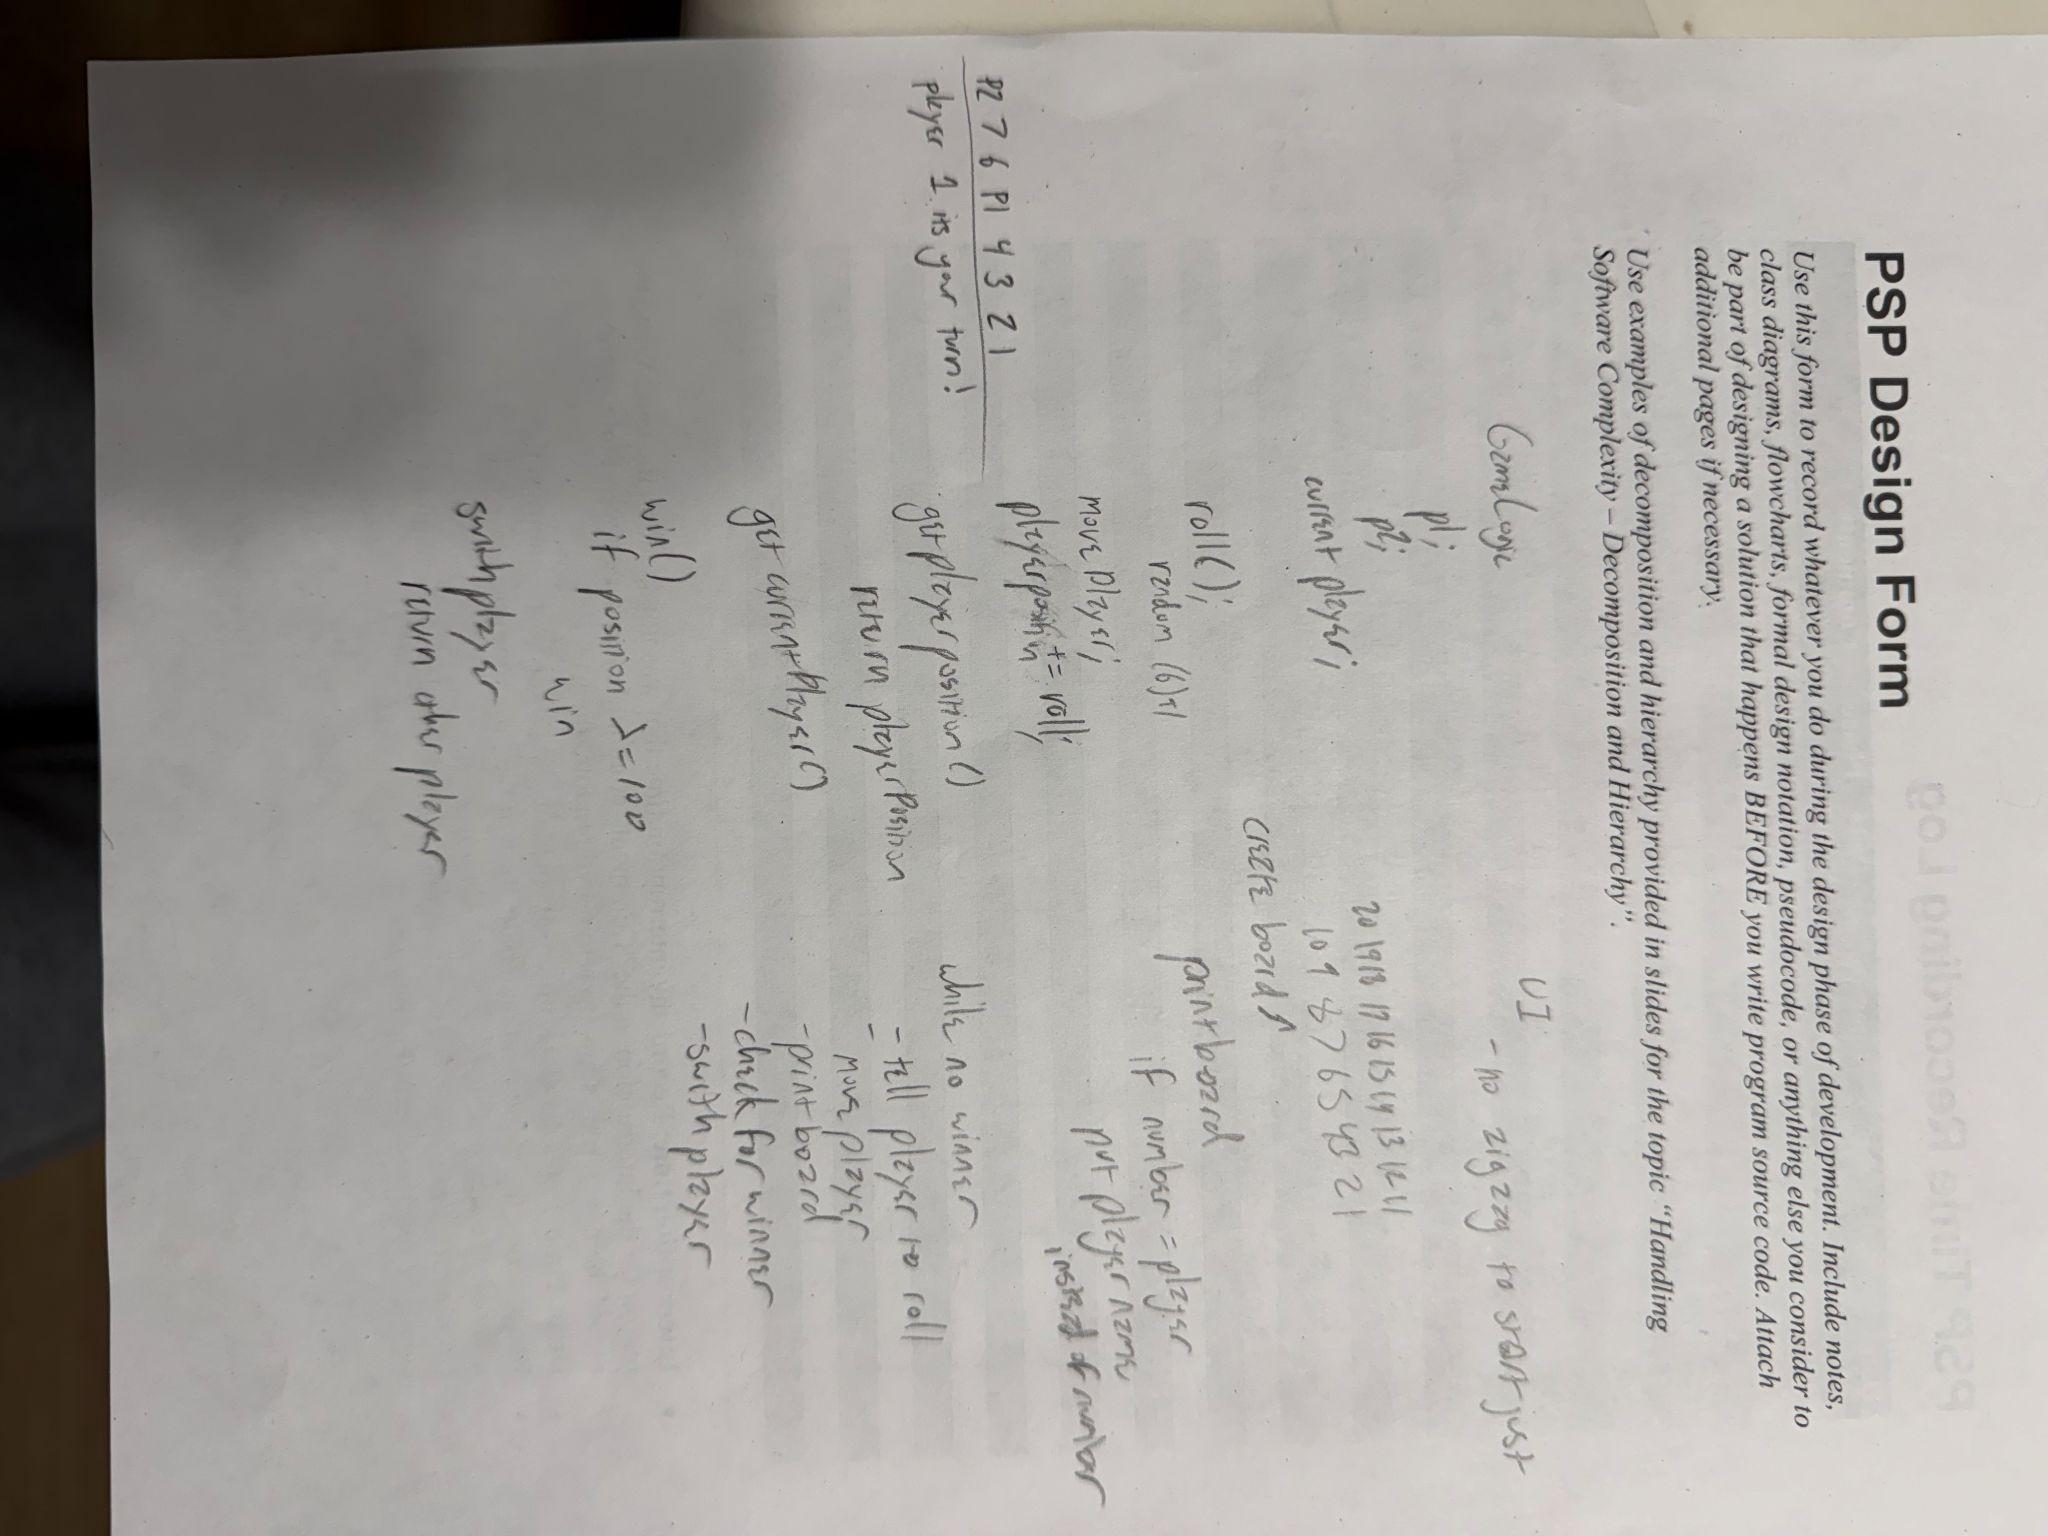 PSP Design Form
Use this form to record whatever you do during the design phase of development. Include notes,
class diagrams, flowcharts, formal design notation, pseudocode, or anything else you consider to
be part of designing a solution that happens BEFORE you write program source code. Attach
additional pages if necessary.
Use examples of decomposition and hierarchy provided in slides for the topic “Handling
Software Complexity – Decomposition and Hierarchy”.
GameLogic
p1;
p2;
current player;
roll();
random (6)+1
move player;
playerposition += roll;
get player position ()
return player position
get current player()
win()
if position >= 100
win
switch player
return other player
UI - no zig zag to start just
20 19 18 17 16 15 14 13 12 11
10 9 8 7 6 5 4 3 2 1
create board
print board
if number = player
put player name
instead of number
while no winner
- tell player to roll
- move player
- print board
- check for winner
- switch player
P2 7 6 P1 4 3 2 1
player 1 its your turn!
PSP Time Recording Log